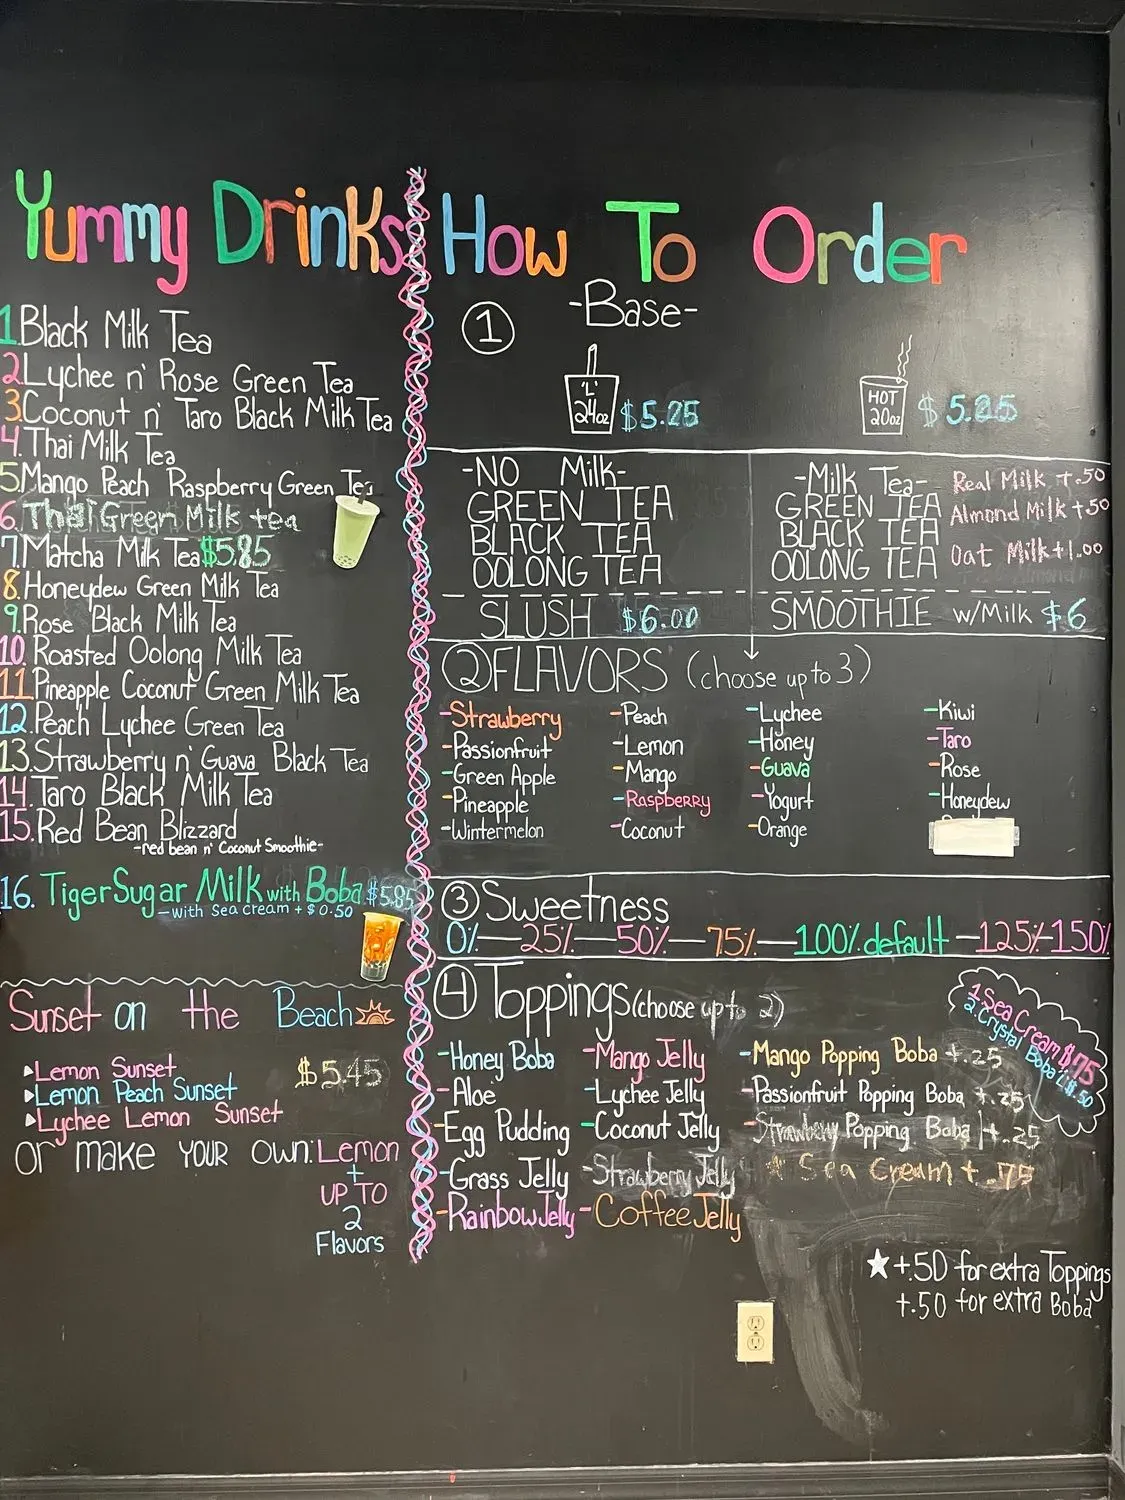 Yummy Drinks
1. Black Milk Tea
2. Lychee n' Rose Green Tea
3. Coconut n' Taro Black Milk Tea
4. Thai Milk Tea
5. Mango Peach Raspberry Green Tea
6. Thai Green Milk tea
7. Matcha Milk Tea $5.85
8. Honeydew Green Milk Tea
9. Rose Black Milk Tea
10. Roasted Oolong Milk Tea
11. Pineapple Coconut Green Milk Tea
12. Peach Lychee Green Tea
13. Strawberry n' Guava Black Tea
14. Taro Black Milk Tea
15. Red Bean Blizzard
-red bean n' Coconut Smoothie-
16. Tiger Sugar Milk with Boba $5.85
-with Sea cream + $0.50
Sunset on the Beach
Lemon Sunset
$5.45
Lemon Peach Sunset
Lychee Lemon Sunset
or make YOUR OWN: Lemon
+
UP TO
2
Flavors
How To Order
1 -Base-
'L'
24oz $5.25
HOT
20oz $5.25
-NO Milk-
GREEN TEA
BLACK TEA
OOLONG TEA
SLUSH $6.00
-Milk Tea-
GREEN TEA
BLACK TEA
OOLONG TEA
Real Milk +.50
Almond Milk +.50
Oat Milk +1.00
SMOOTHIE w/Milk $6
2 FLAVORS (choose up to 3)
-Strawberry -Peach -Lychee -Kiwi
-Passionfruit -Lemon -Honey -Taro
-Green Apple -Mango -Guava -Rose
-Pineapple -Raspberry -Yogurt -Honeydew
-Wintermelon -Coconut -Orange
3 Sweetness
0%—25%—50%—75%—100% default—125%-150%
4 Toppings (choose up to 2)
1. Sea Cream $.75
2. Crystal Boba $.50
-Honey Boba -Mango Jelly -Mango Popping Boba +.25
-Aloe -Lychee Jelly -Passionfruit Popping Boba +.25
-Egg Pudding -Coconut Jelly -Strawberry Popping Boba +.25
-Grass Jelly -Strawberry Jelly Sea Cream +.75
-Rainbow Jelly -Coffee Jelly
★ +.50 for extra Toppings
+.50 for extra Boba